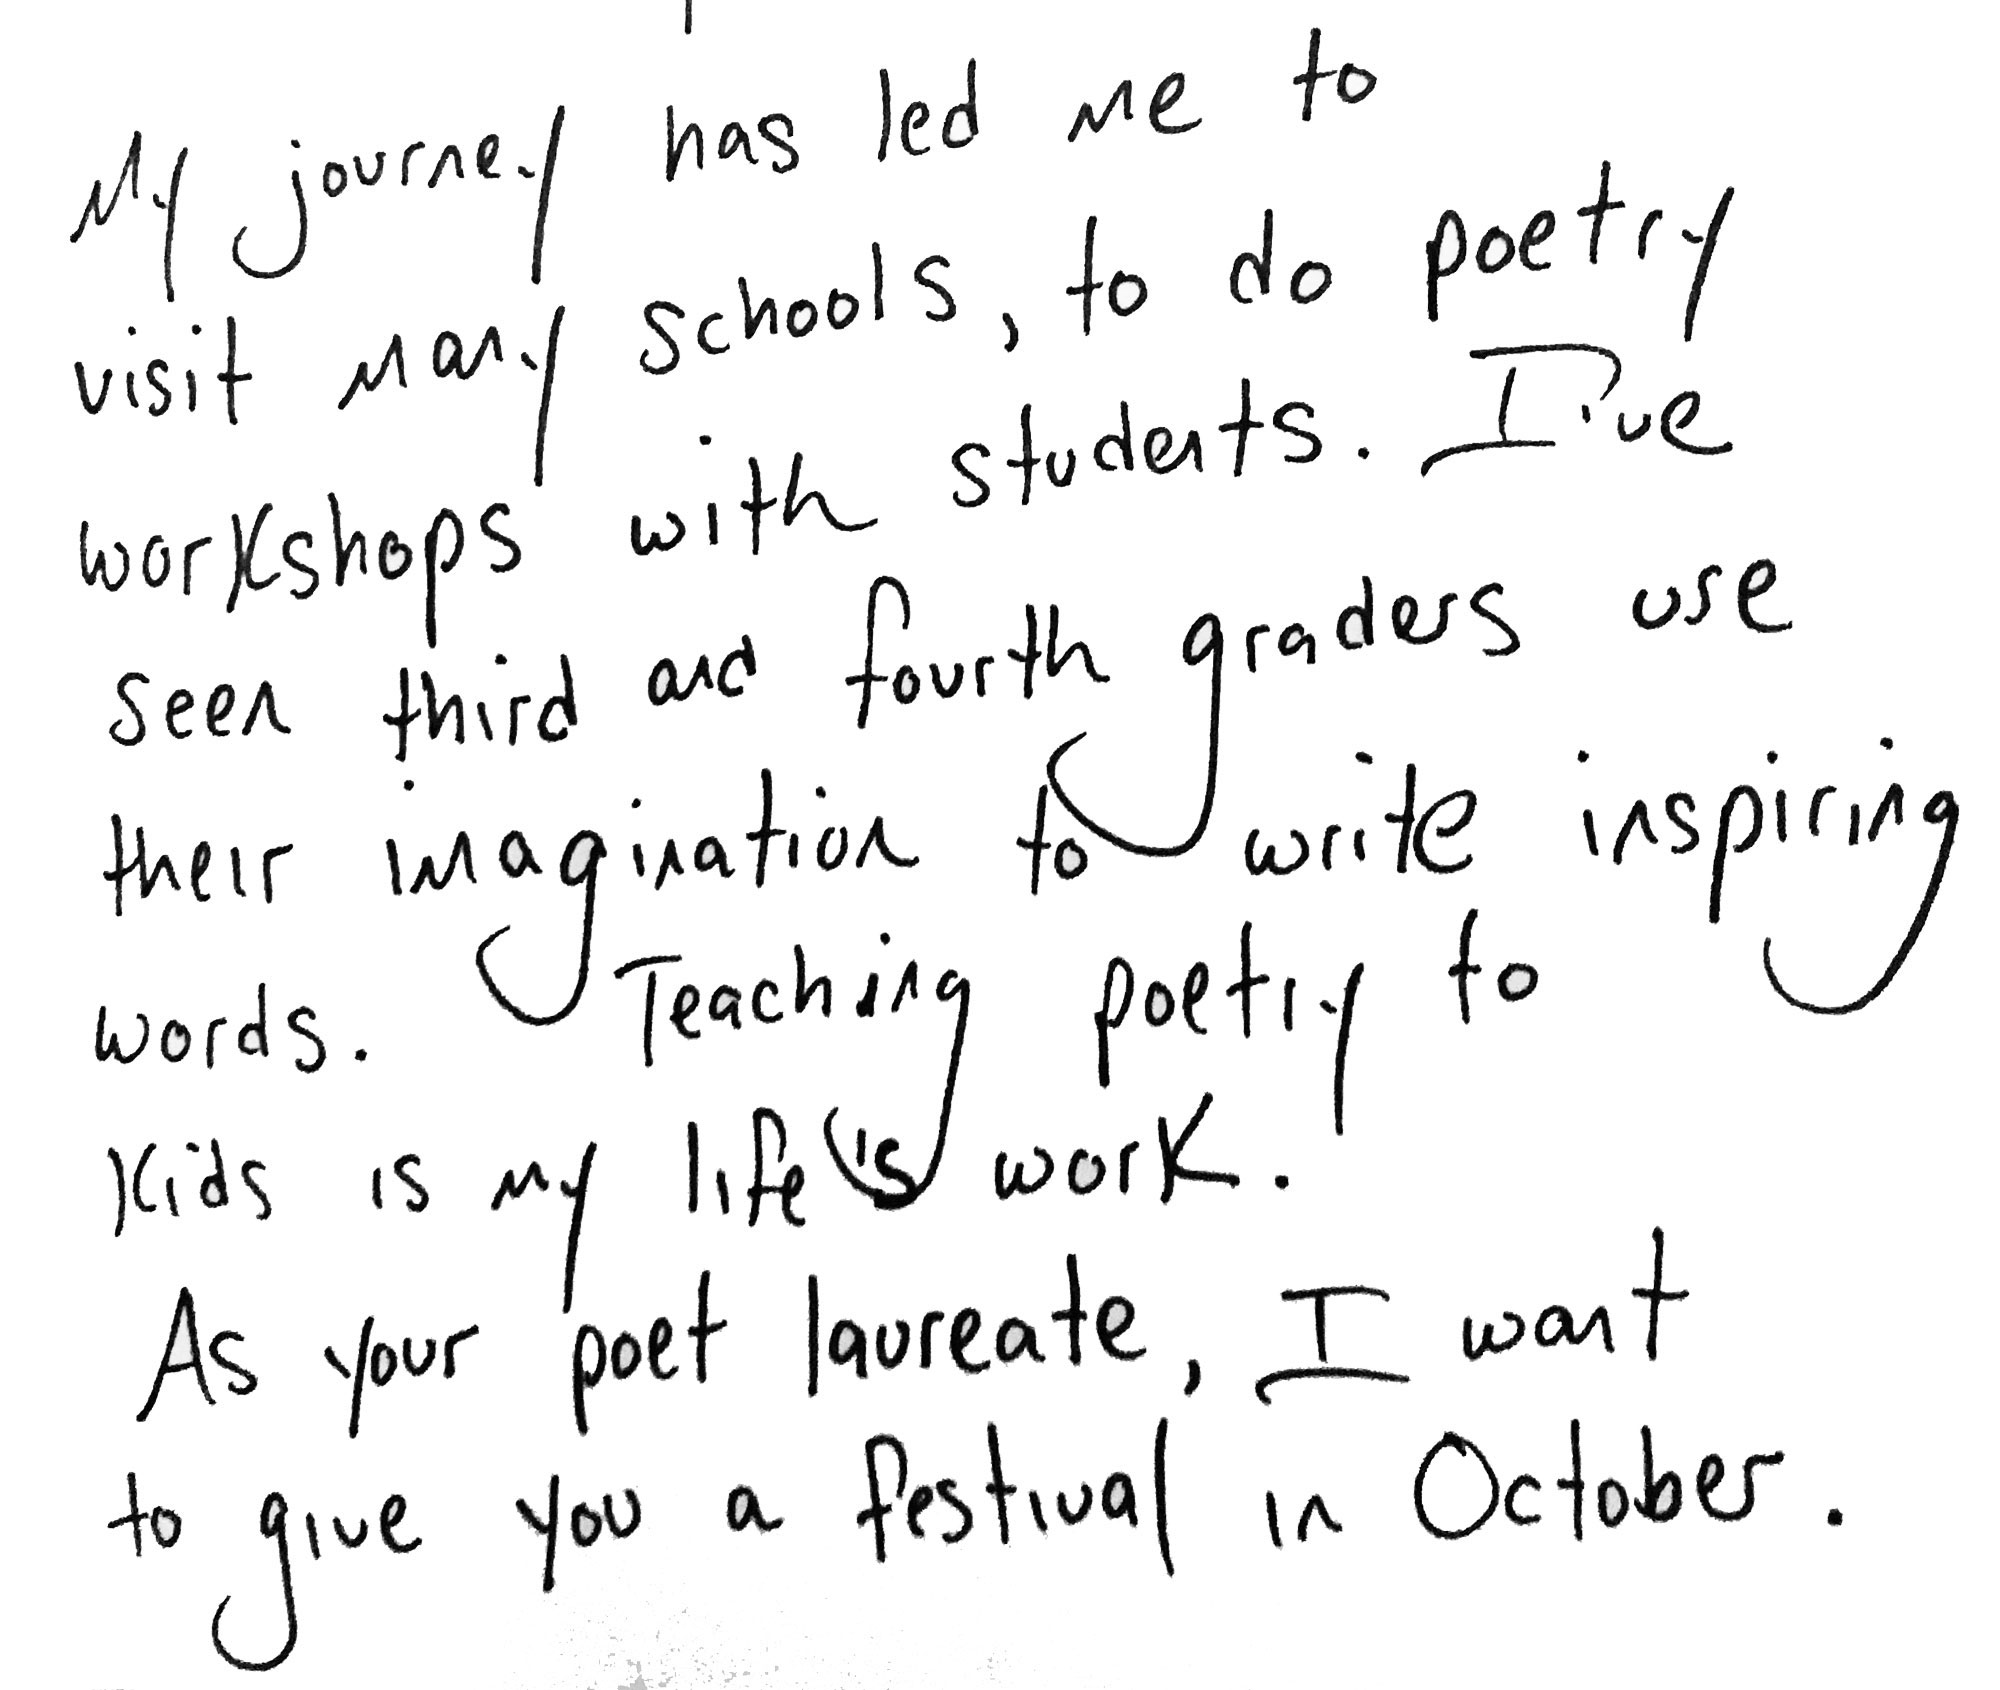 My journey has led me to
visit many schools, to do poetry
workshops with students. I've
seen third and fourth graders use
their imagination to write inspiring
words. Teaching poetry to
kids is my life's work.
As your poet laureate, I want
to give you a festival in October.